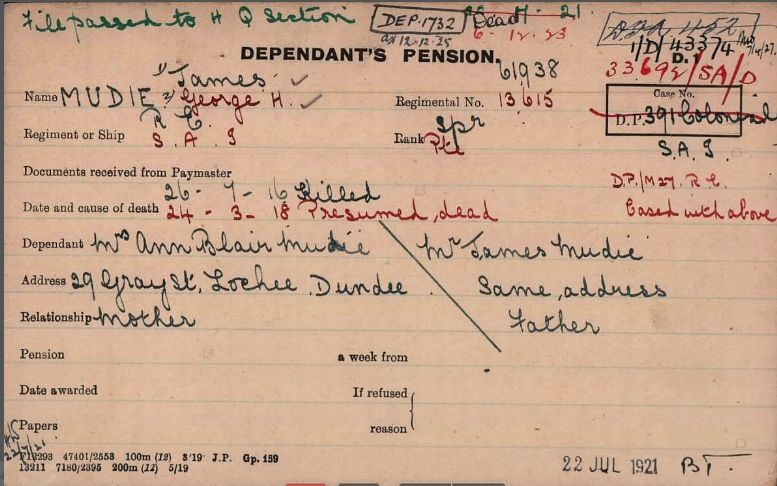 File passed to H Q Section DEP.1732 Dead 21.
6-12-23
12-12-25
1/D/43374
DEPENDANT'S PENSION. D. 1
61938 33692/SA/D
1) James ✓
Name MUDIE 2) George H. ✓ Regimental No. 13615
Case No.
D.P. 391 Colonial
R E. Spr
Regiment or Ship S. A. I Rank Pte
S.A.I.
Documents received from Paymaster
D.P./M27. R.E.
26 - 7 - 16 Killed
Date and cause of death 24 - 3 - 18 Presumed dead
Cased with above
Dependant Mrs Ann Blair Mudie Mr James Mudie
Address 29 Gray St, Lochee Dundee. Same address
Relationship Mother Father
Pension a week from
Date awarded If refused
Papers reason
22/7/21
F12293 47401/2558 100m (12) 3'19 J.P. Gp. 159
13211 7180/2395 200m (12) 5/19
22 JUL 1921 B.T.